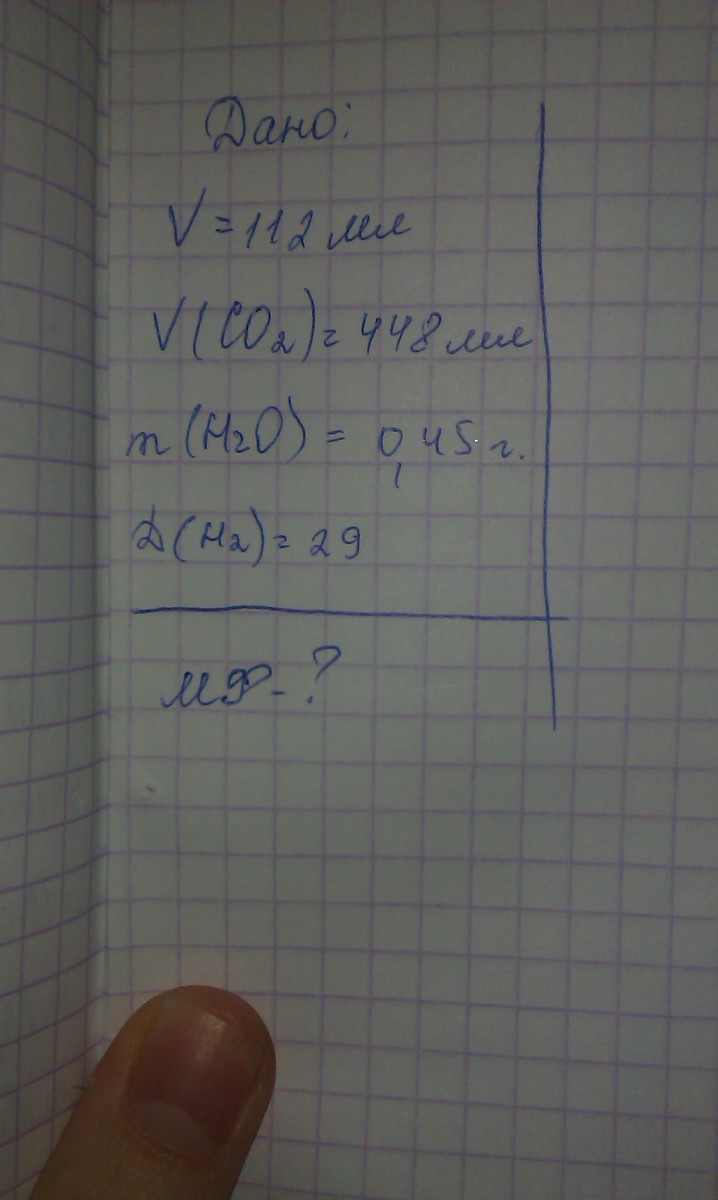 Дано:
V = 112 мл
V(CO₂) = 448 мл
m(H₂O) = 0,45 г.
D(H₂) = 29
МФ - ?